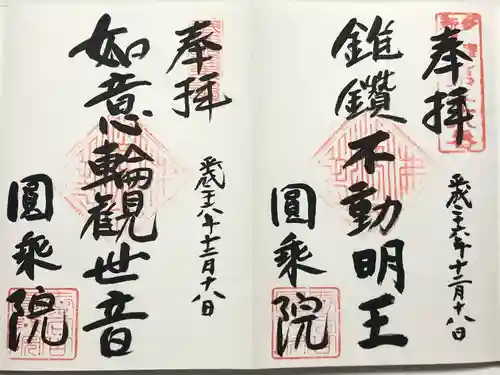 奉拝
錐鑽不動明王
平成二六年十二月十八日
圓乗院
奉拝
如意輪観世音
平成二八年十二月十八日
圓乗院